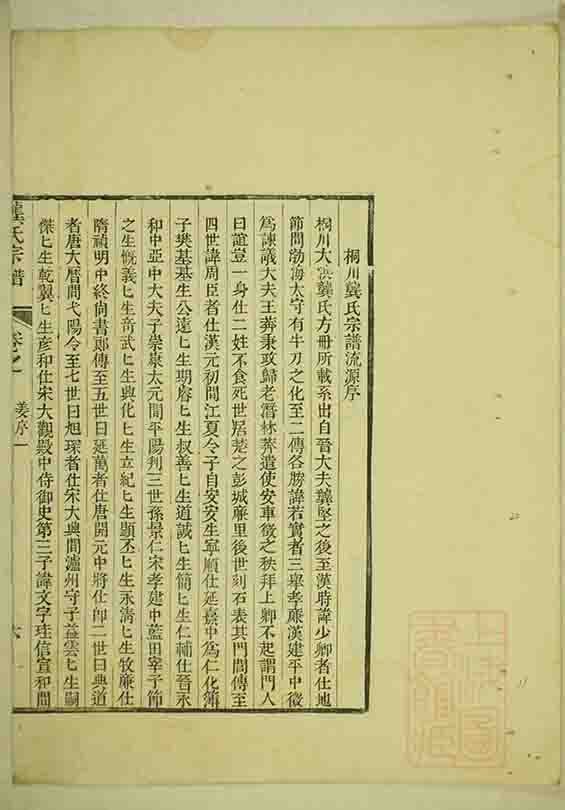 桐川龔氏宗譜流源序
桐川大洪龔氏方冊所載系出自晉大夫龔堅之後至漢時諱少卿者仕地
節間渤海太守有牛刀之化至二傳名勝諱若賓者三舉孝廉漢建平中徵
為諫議大夫王莽秉政歸老潛林莽遣使安車徵之秩拜上卿不起謂門人
曰誼豈一身仕二姓不食死世居楚之彭城廉里後世刻石表其門閭傳至
四世諱周臣者仕漢元初間江夏令子自安安生寧順仕延嘉中為仁化簿
子樊基基生公遠匕生期睿匕生叔善匕生道誠匕生簡匕生仁輔仕晉永
和中亞中大夫子崇康太元間平陽判三世孫景仁宋孝建中藍田宰子節
之生慨義匕生奇武匕生與化匕生立紀匕生顯丕匕生永清匕生牧廉仕
隋禎明中終尚書郎傳至五世曰延萬者仕唐開元中將仕郎二世曰典道
者唐大曆間弋陽令至七世曰旭琛者仕宋太興間瀘州守子益雲匕生嗣
傑匕生乾翼匕生彥和仕宋大觀殿中侍御史第三子諱文字珪信宣和間
龔氏宗譜
卷之一
姜序一
六